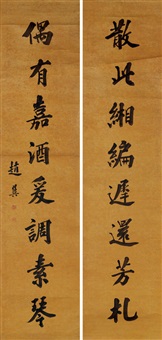 散此緗編遲還芳札
偶有嘉酒爰調素琴
趙巽